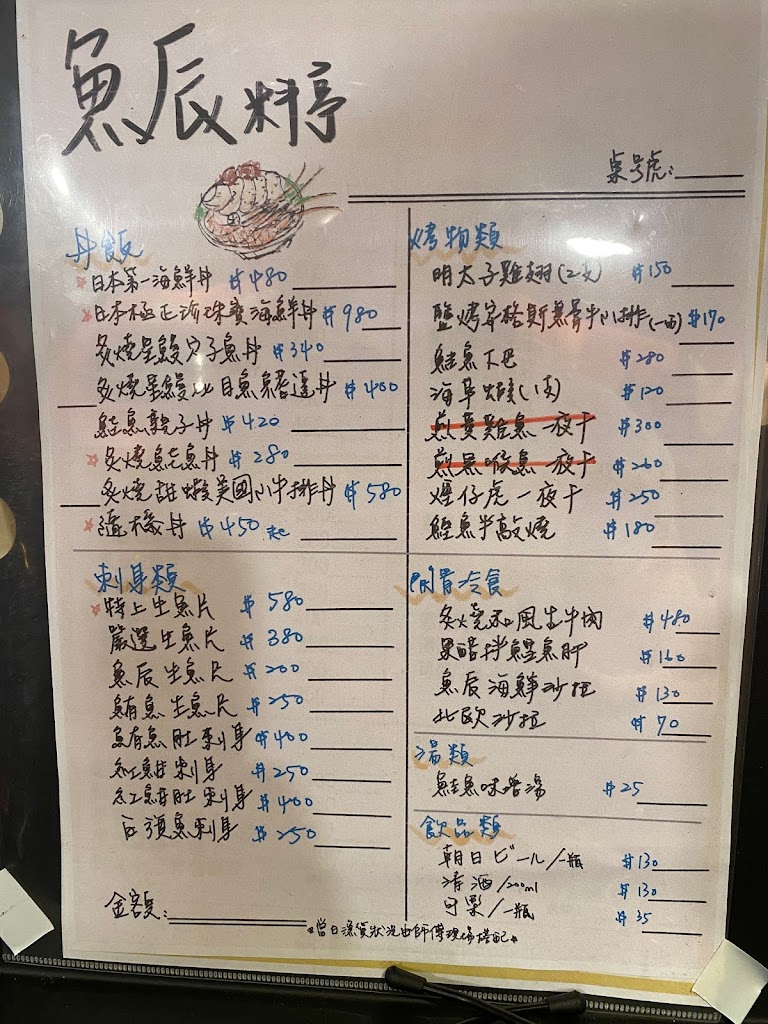 魚辰 料亭
桌號:
丼飯
☆日本第一海鮮丼 $480
☆日本極正珍珠寶海鮮丼 $980
炙燒星鰻穴子魚丼 $340
炙燒星鰻比目魚鰭邊丼 $400
鮭魚親子丼 $420
☆炙燒鮭魚丼 $280
炙燒甜蝦美國小牛排丼 $580
☆隨機丼 $450起
刺身類
☆特上生魚片 $580
嚴選生魚片 $380
魚辰生魚片 $200
鮪魚生魚片 $250
鮪魚肚刺身 $400
紅魽刺身 $250
紅魽肚刺身 $400
白須魚刺身 $250
金額:
烤物類
明太子雞翅(2支) $150
鹽烤安格斯無骨牛小排(一兩) $170
鮭魚下巴 $280
海草蝦(1支) $120
無雙雞魚一夜干 $300
喉魚一夜干 $260
煙仔虎一夜干 $250
鰹魚半敲燒 $180
開胃冷食
炙燒和風生牛肉 $480
果醋拌鱈魚肝 $160
魚辰海鮮沙拉 $130
北歐沙拉 $70
湯類
鮭魚味噌湯 $25
飲品類
朝日ビール/一瓶 $130
清酒/200ml $130
可樂/一瓶 $35
*當日漁貨狀況由師傅現場搭配*